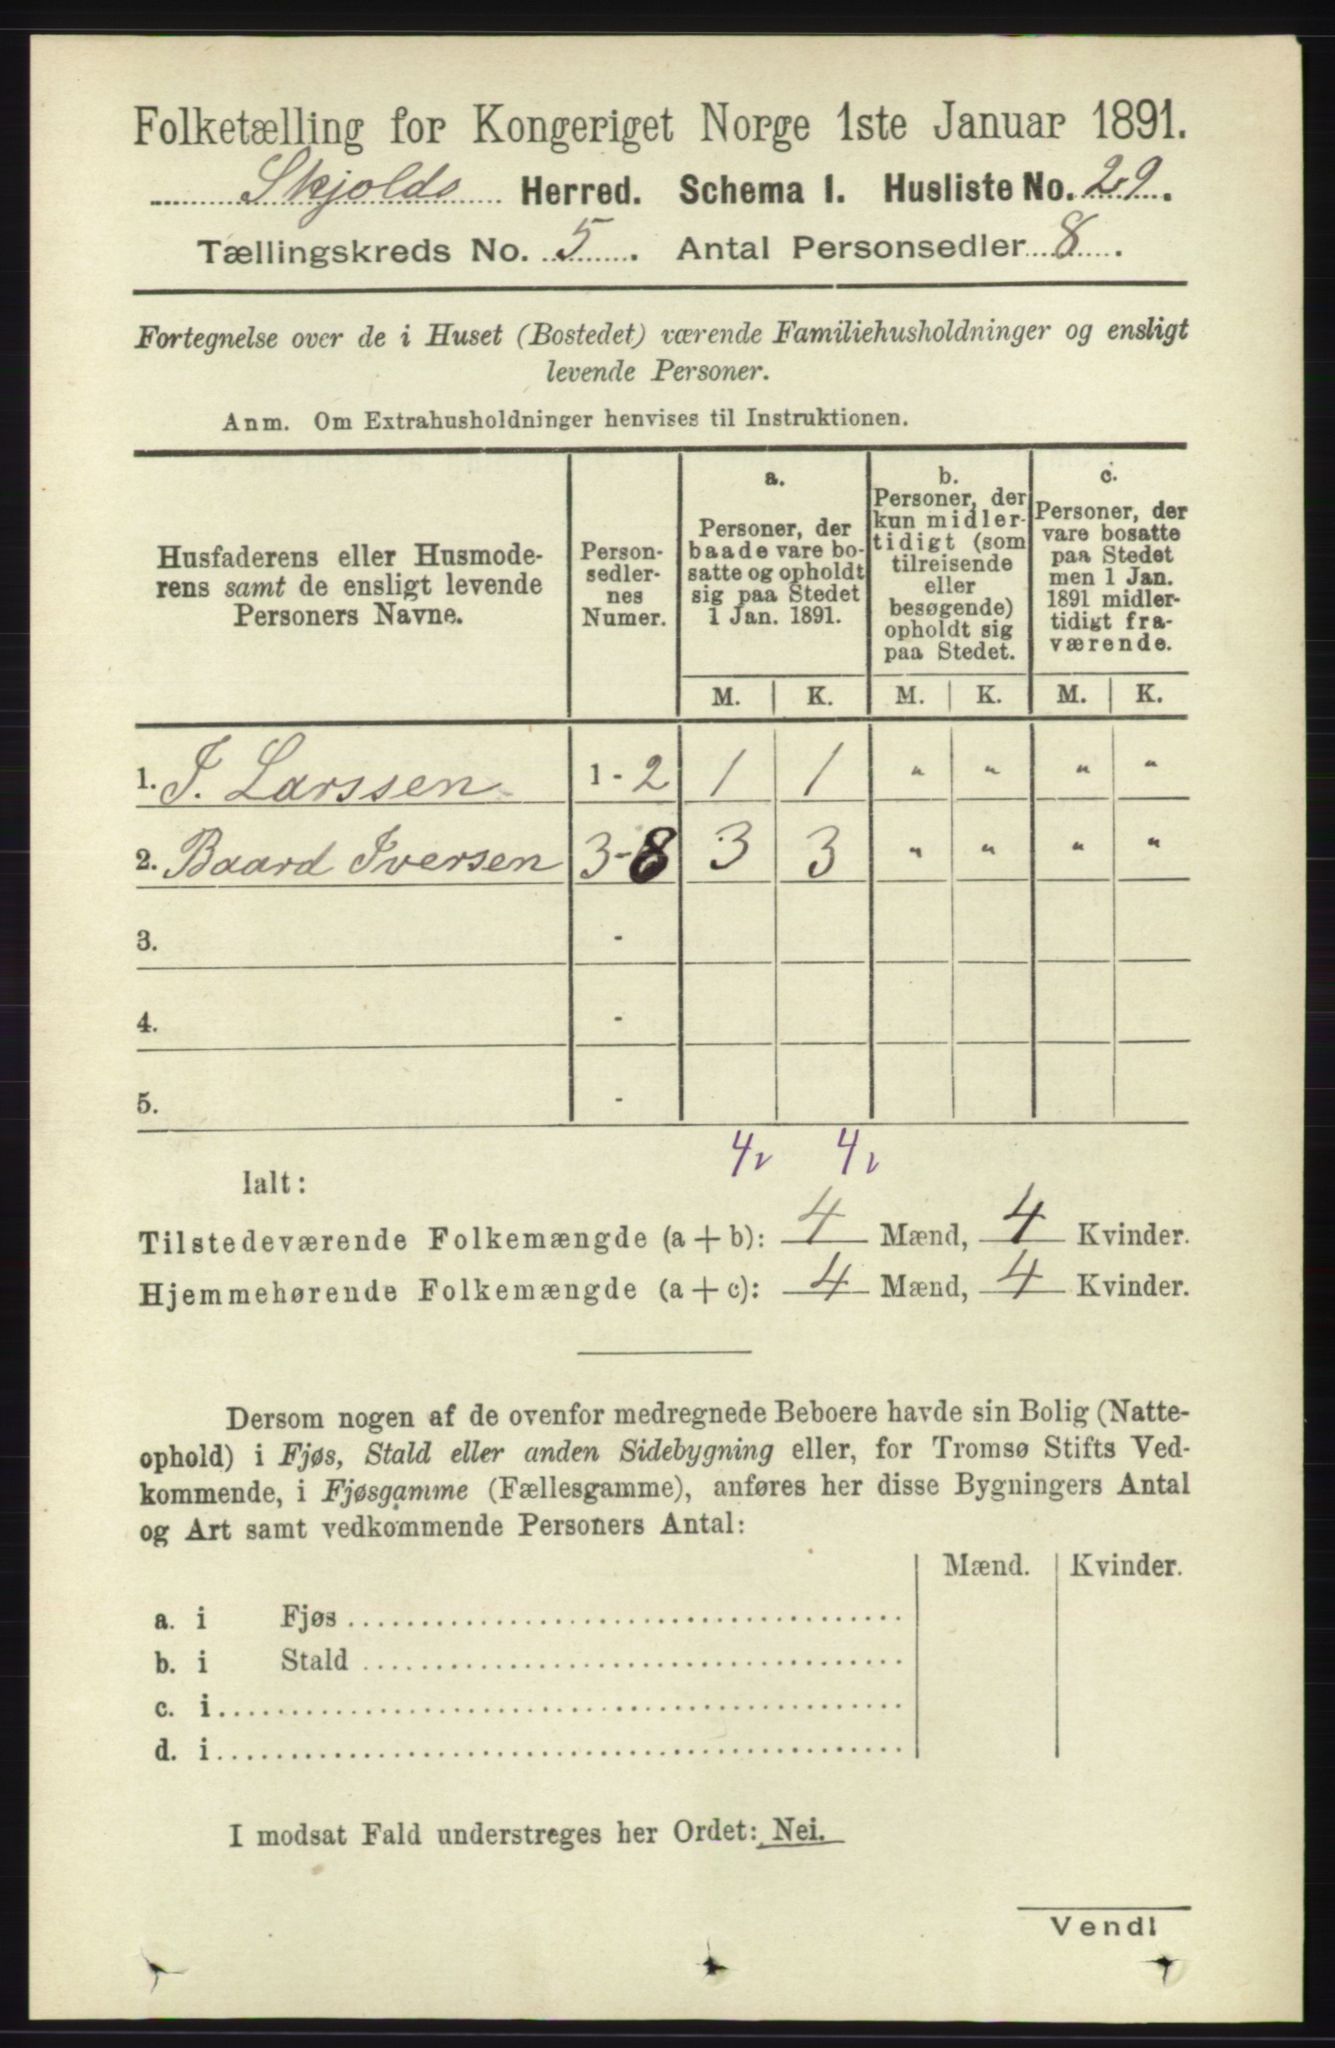 Folketælling for Kongeriget Norge 1ste Januar 1891.
Skjolds Herred. Schema I. Husliste No. 29.
Tællingskreds No. 5. Antal Personsedler 8.
Fortegnelse over de i Huset (Bostedet) værende Familiehusholdninger og ensligt
levende Personer.
Anm. Om Extrahusholdninger henvises til Instruktionen.
Husfaderens eller Husmode-
rens samt de ensligt levende
Personers Navne.
Person-
sedler-
nes
Numer.
a.
Personer, der
baade vare bo-
satte og opholdt
sig paa Stedet
1 Jan. 1891.
b.
Personer, der
kun midler-
tidigt (som
tilreisende
eller
besøgende)
opholdt sig
paa Stedet.
c.
Personer, der
vare bosatte
paa Stedet
men 1 Jan.
1891 midler-
tidigt fra-
værende.
M. K. M. K. M. K.
1. J. Larssen 1 - 2 1 1 " " " "
2. Baard Iversen 3-8 3 3 " " " "
3. -
4. -
5. -
4 4
Ialt:
Tilstedeværende Folkemængde (a + b): 4 Mænd, 4 Kvinder.
Hjemmehørende Folkemængde (a + c): 4 Mænd, 4 Kvinder.
Dersom nogen af de ovenfor medregnede Beboere havde sin Bolig (Natte-
ophold) i Fjøs, Stald eller anden Sidebygning eller, for Tromsø Stifts Ved-
kommende, i Fjøsgamme (Fællesgamme), anføres her disse Bygningers Antal
og Art samt vedkommende Personers Antal:
Mænd. Kvinder.
a. i Fjøs
b. i Stald
c. i
d. i
I modsat Fald understreges her Ordet: Nei.
Vend!